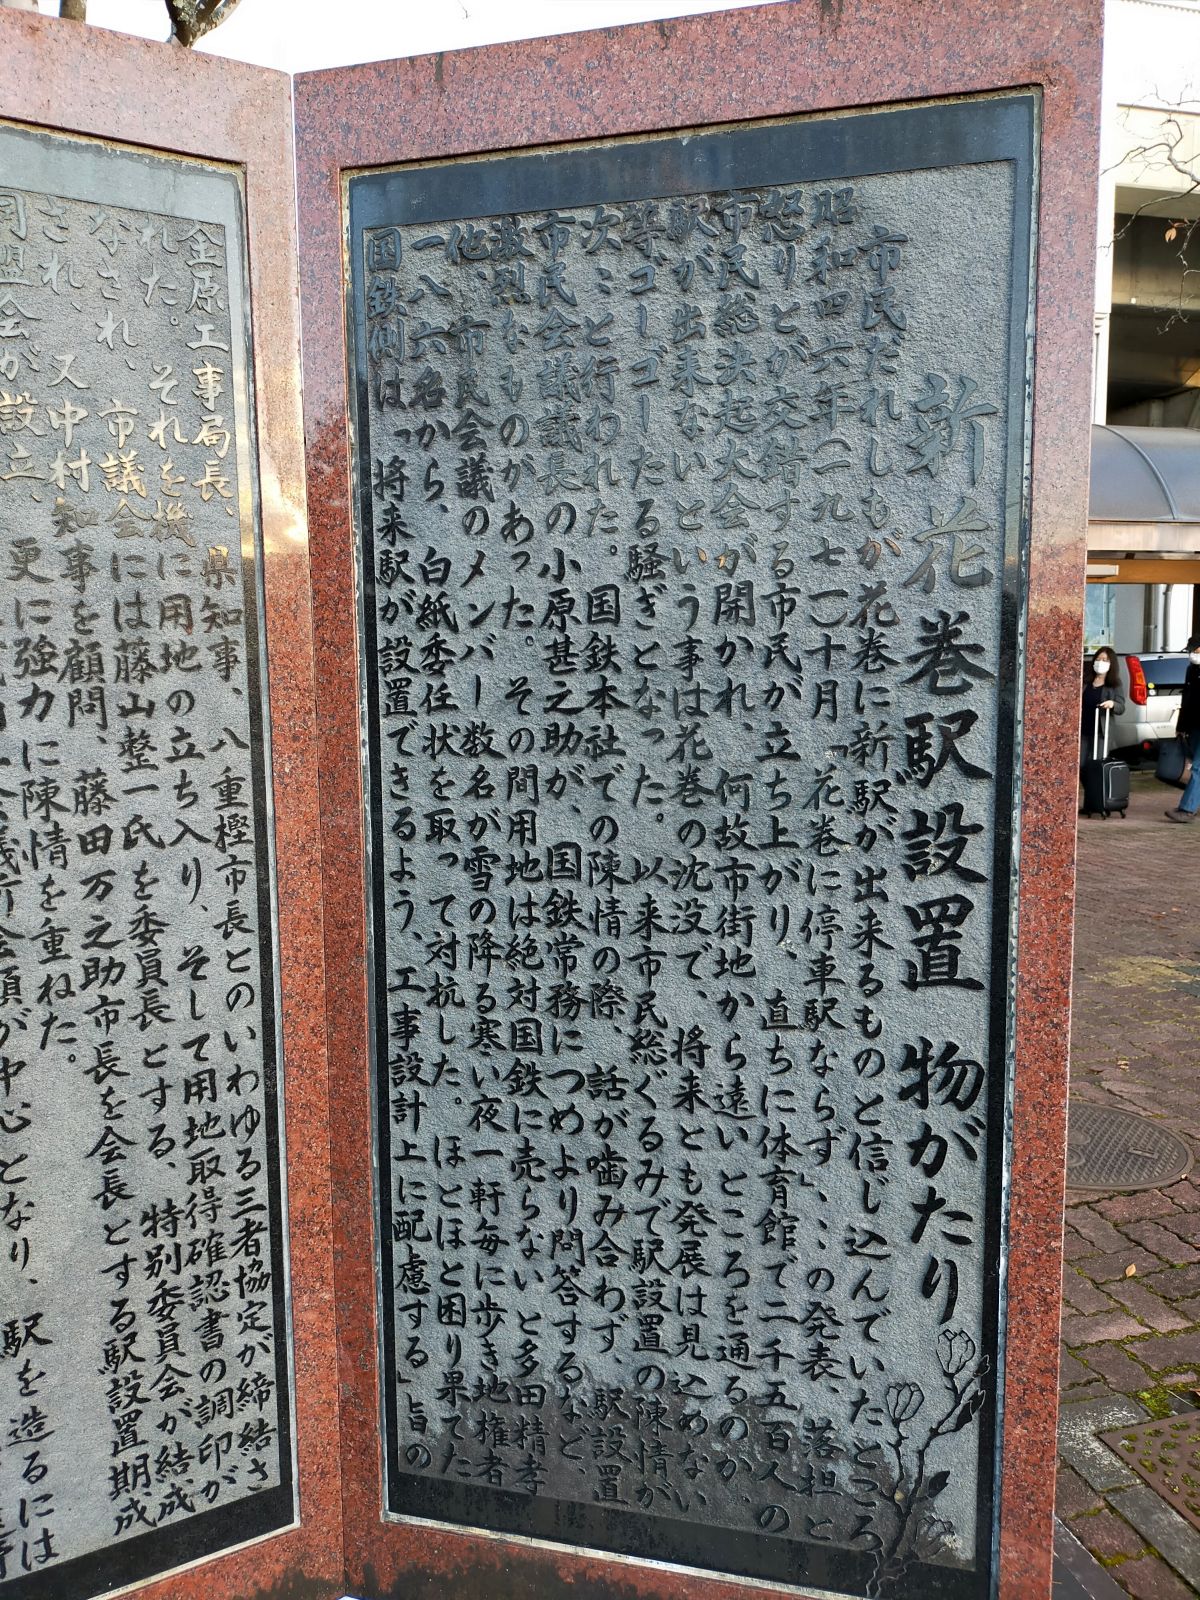 新花巻駅設置 物がたり
市民だれしもが花巻に新駅が出来るものと信じ込んでいたところ
昭和四六年(一九七一)十月「花巻に停車駅ならず」、:の発表、落担と
怒りとが交錯する市民が立ち上がり、直ちに体育館で二千五百人の
市民総決起大会が開かれ、何故市街地から遠いところを通るのか、
駅が出来ないという事は花巻の沈没で、将来とも発展は見込めない
等ゴーゴーたる騒ぎとなった。以来市民総ぐるみで駅設置の陳情が
次ミと行われた。国鉄本社での陳情の際、話が噛み合わず、駅設置
市民会議議長の小原甚之助が、国鉄常務につめより問答するなど、
激烈なものがあった。その間用地は絶対国鉄に売らないと多田精孝
他、市民会議のメンバー数名が雪の降る寒い夜一軒毎に歩き地権者
一八六名から、白紙委任状を取って対抗した。ほとほと困り果てた
国鉄側は「将来駅が設置できるよう、工事設計上に配慮する」旨の
金原工事局長、県知事、八重樫市長とのいわゆる三者協定が締結さ
れた。それを機に用地の立ち入り、そして用地取得確認書の調印が
なされ、市議会には藤山整一氏を委員長とする、特別委員会が結成
され、又中村知事を顧問、藤田万之助市長を会長とする駅設置期成
同盟会が設立、更に強力に陳情を重ねた。
が中心となり、駅を造るには